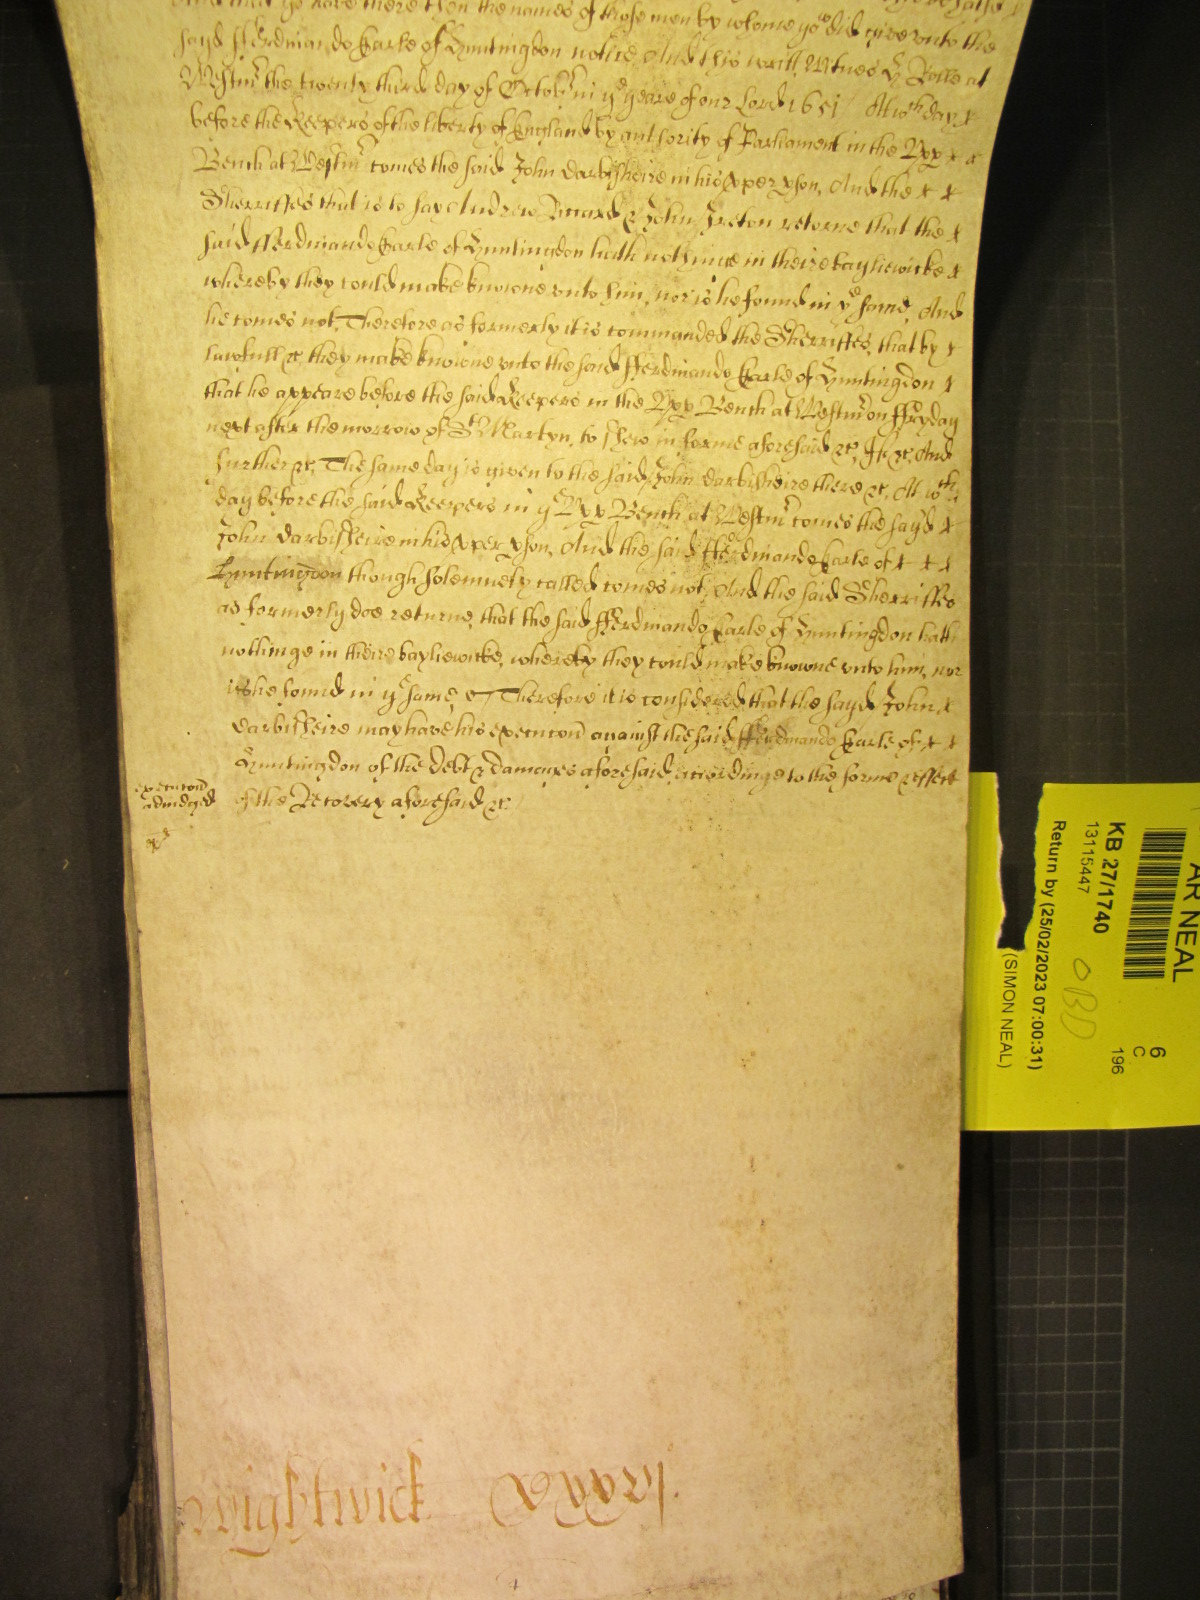 And that yo have there then the names of those men by whome yo did give unto the
sayd fferdinando Earle of Huntingdon notice, And this writt, Witnes H Rolle at
Westmr the twenty third day of Octobr in ye yeare of our Lord 1651 Att wch day
before the Keepers of the liberty of England by authority of Parliament in the Upp
Bench at Westmr comes the said John Darbisheire in his pper pson, And the
Sherriffes that is to say Andrew Ricard & John Ireton retorne that the
said fferdinando Earle of Huntingdon hath nothinge in theire bayliewicke
whereby they could make knowne unto him, nor is he found in ye same, And
he comes not, Therefore as formerly it is commanded the Sherriffes, that by
lawfull &c they make knowne unto the said fferdinando Earle of Huntingdon
that he appeare before the said Keepers in the Upp Bench at Westmr on ffryday
next after the morrow of St Martyn, to shew in forme aforesaid &c, If &c And
further &c, The same day is given to the said John Darbisheire there &c, At wch
day before the said Keepers in ye Upp Bench at Westmr comes the sayd
John Darbisheire in his pper pson, And the said fferdinando Earle of
Huntingdon though solemnely called comes not, And the said Sherriffes
as formerly doe returne, that the said fferdinando Earle of Huntingdon hath
nothinge in theire bayliewicke, whereby they could make knowne unto him, nor
is he found in ye same &c Therefore it is considered that the sayd John
Darbisheire may have his execucon against the said fferdinando Earle of
Huntingdon of the debt & damages aforesaid, accordinge to the forme & effect
execucon
adiudged
of the Recovery aforesaid &c
Wightwick
AR NEAL
6
C
196
KB 27/1740
13115447
OBD
Return by (25/02/2023 07:00:31)
(SIMON NEAL)